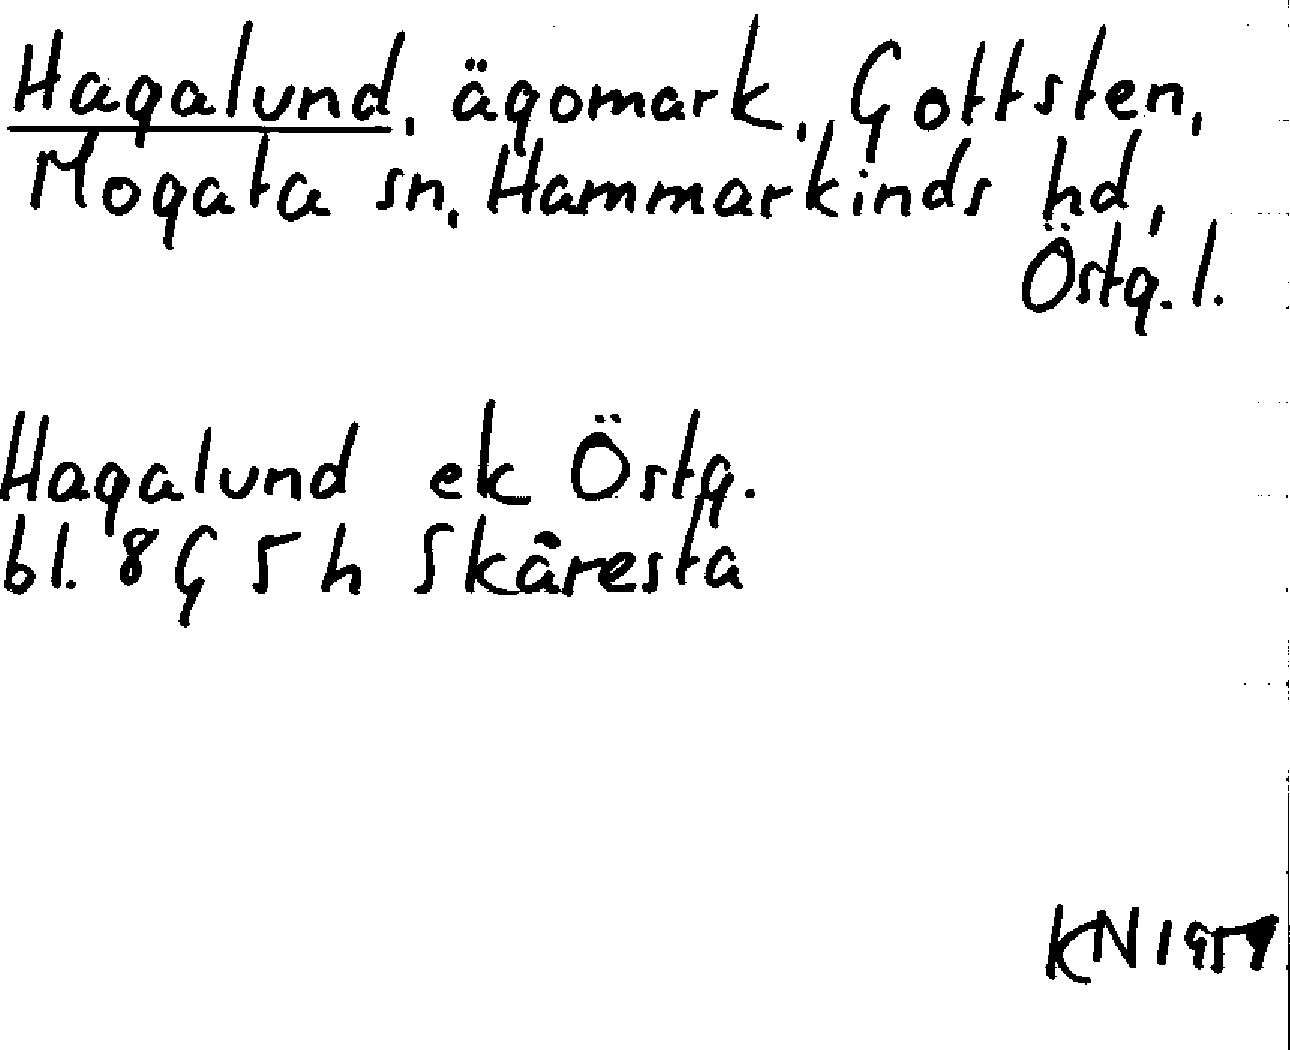 Hagalund, ägomark, Gottsten,
Mogata sn, Hammarkinds hd,
Östg. l.
Hagalund ek Östg.
bl. 8 G 5 h Skåresta
KN